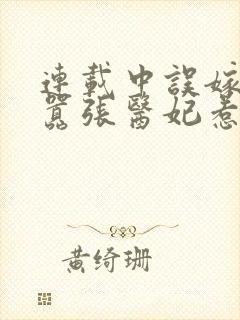 連載中誤嫁
囂張醫妃惹
黄绮珊